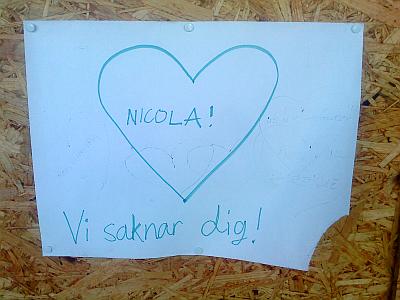 NICOLA!
Vi saknar dig!